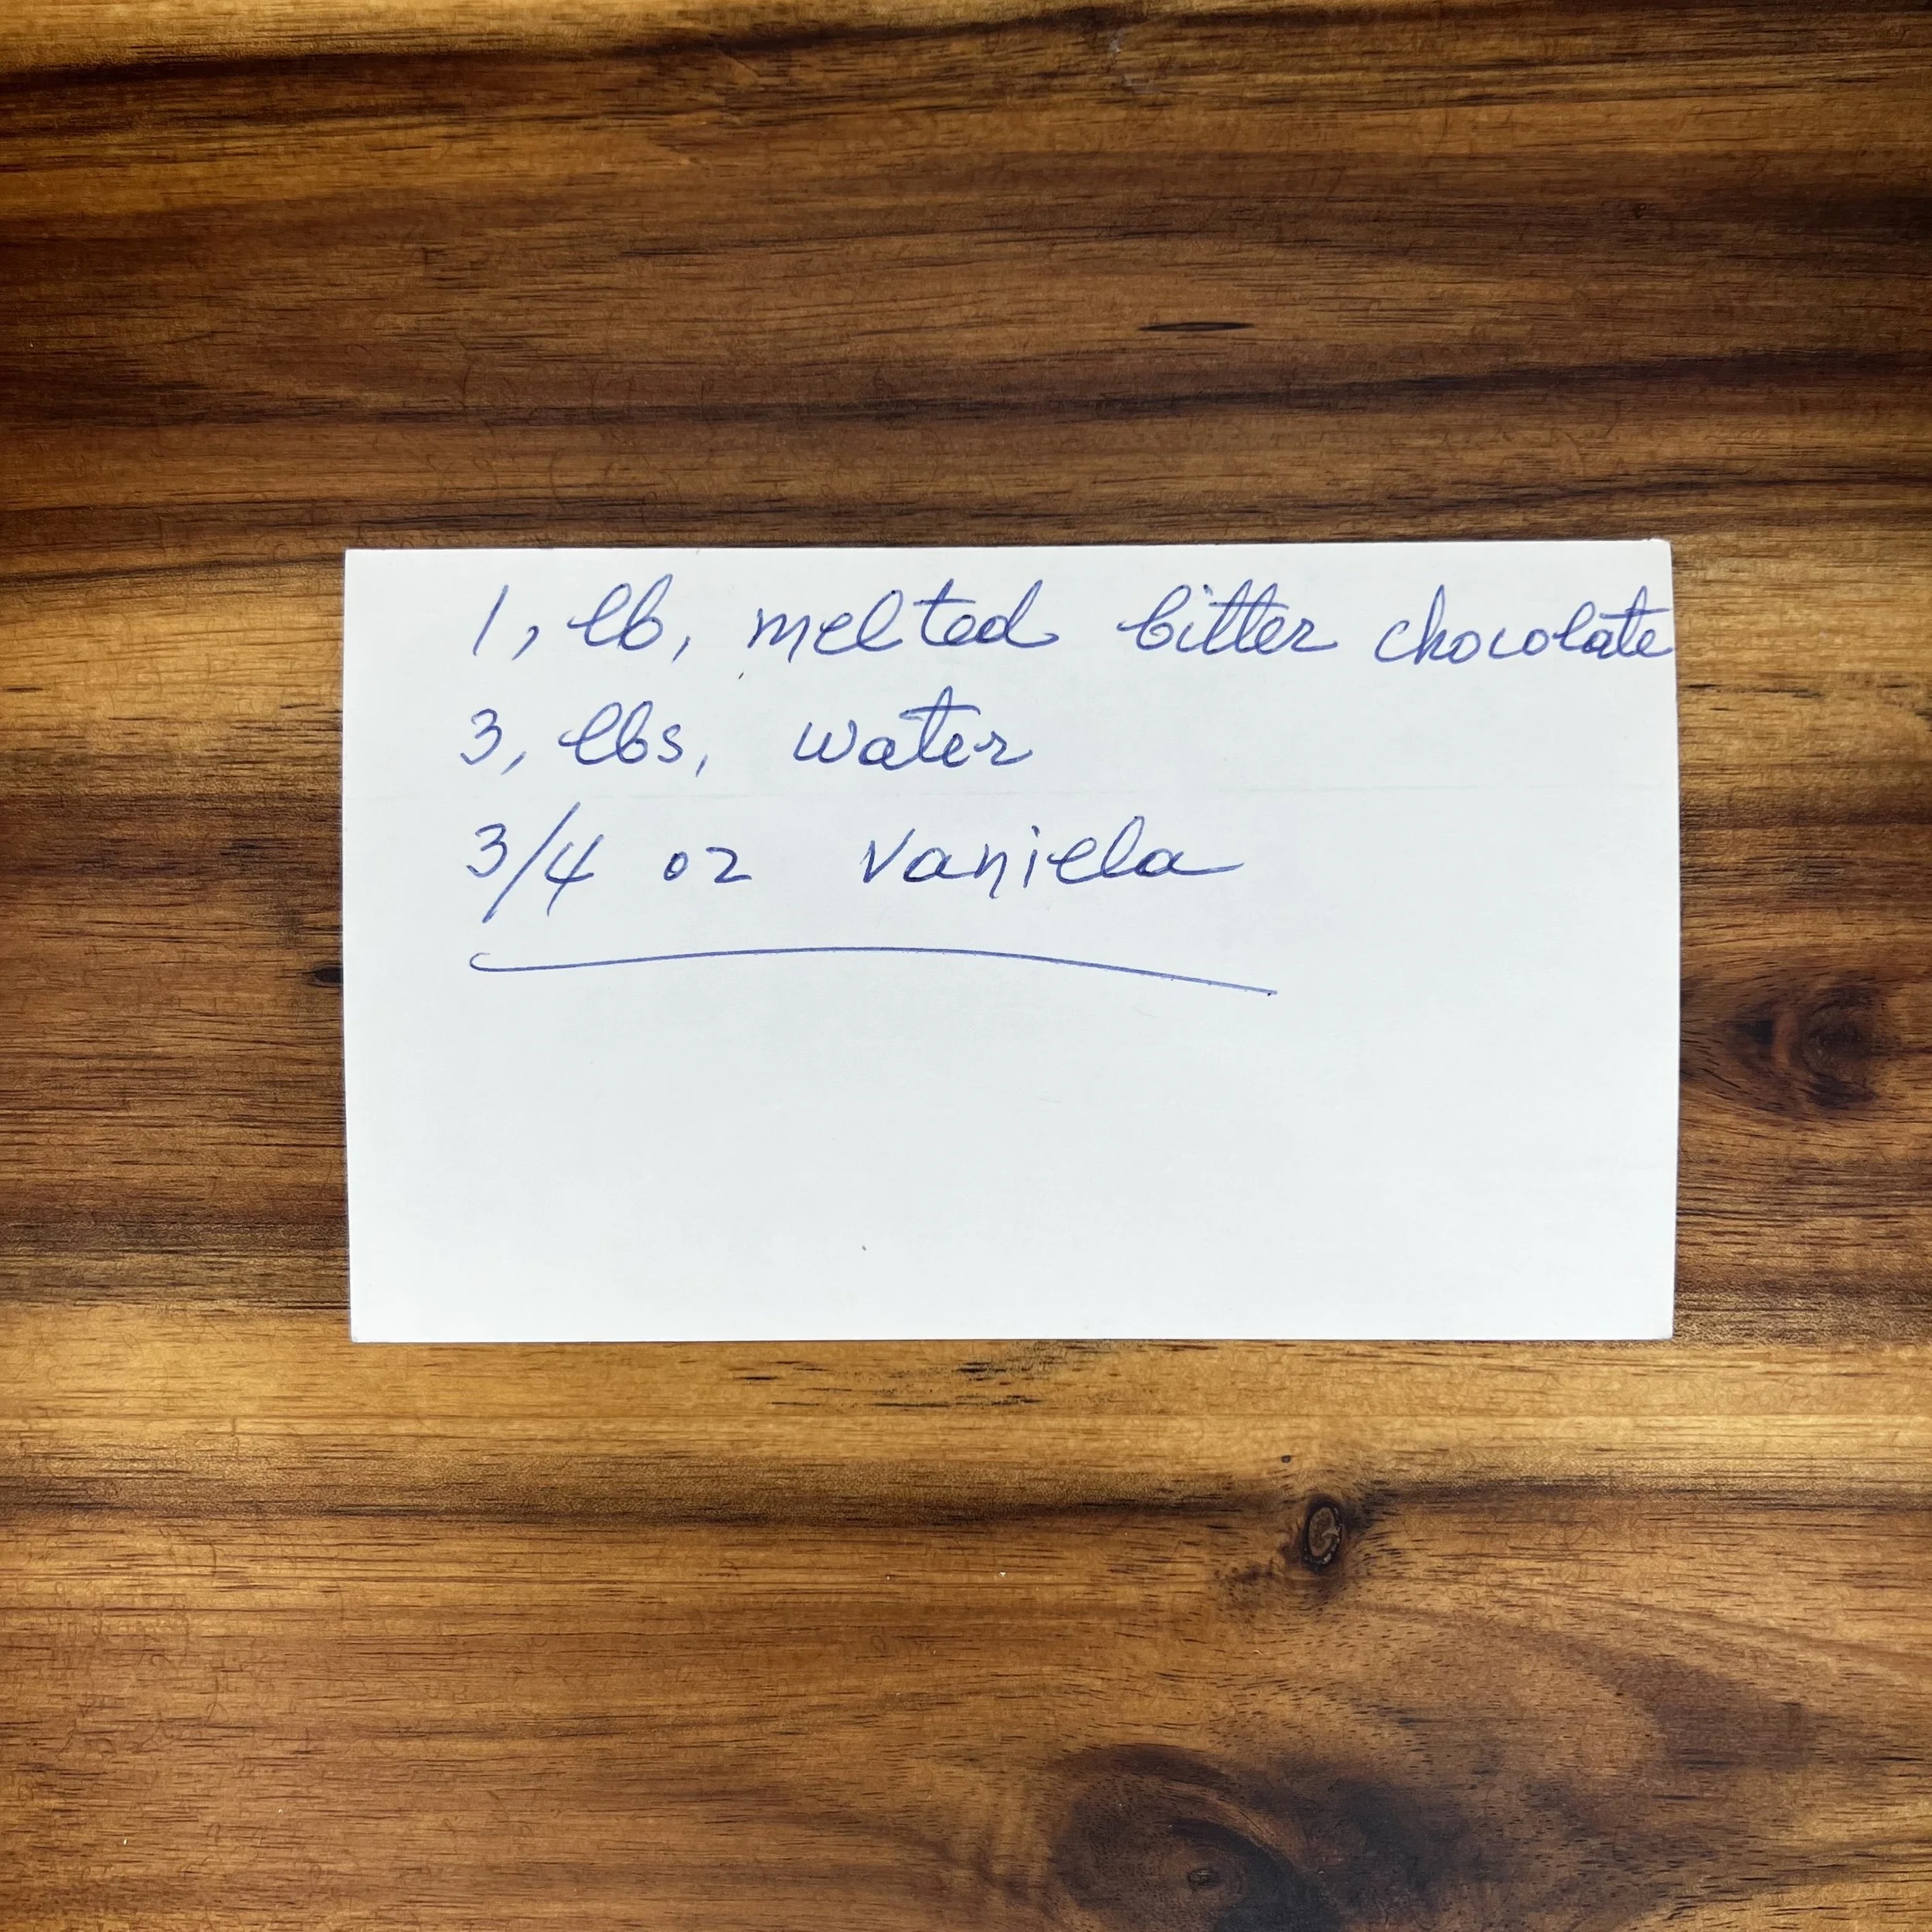 1, lb, melted bitter chocolate
3, lbs, water
3/4 oz vaniela